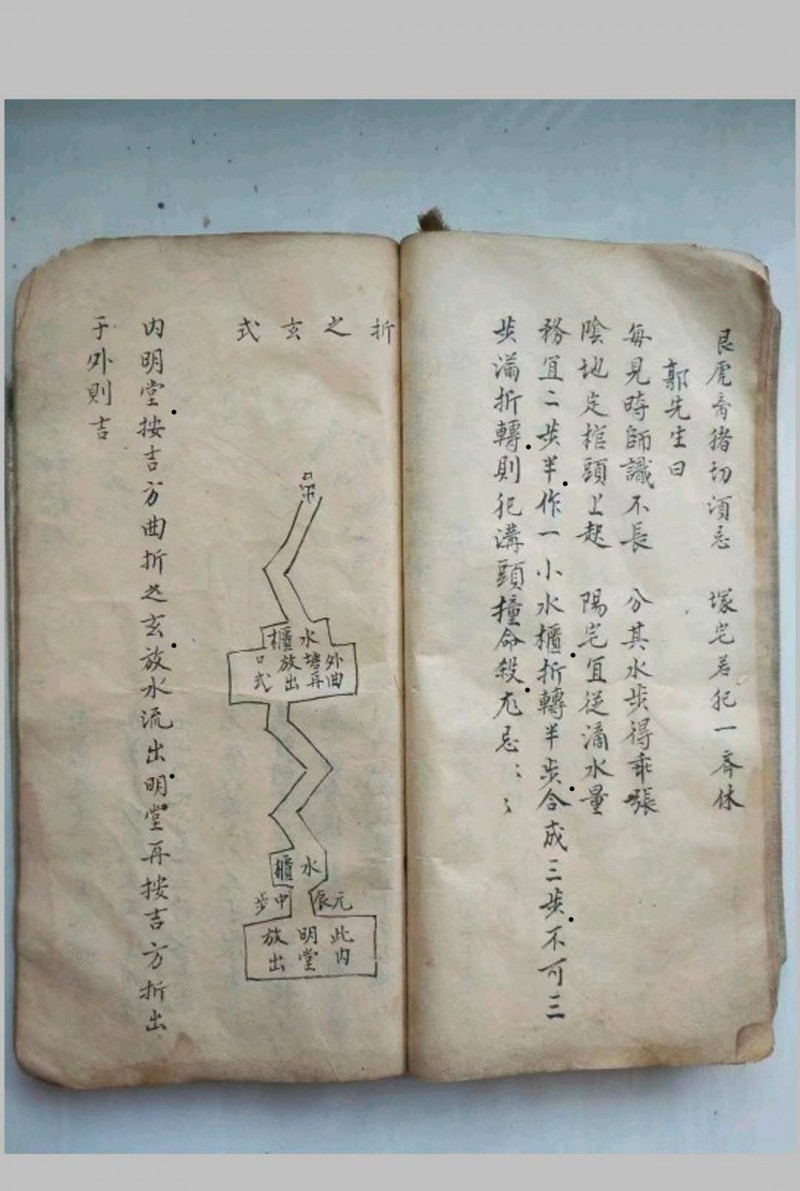 艮虎當猪切須忌 塚宅若犯一齊休
郭先生曰
每見時師識不長 分其水步得乖張
陰地定棺頭上起 陽宅宜從滴水量
務宜二步半作一小水櫃折轉半步合成三步不可三
步滿折轉則犯溝頭撞命殺尤忌
折之玄式
水櫃
外曲
塘再
放出
口式
水櫃
元辰
中步
此内
明堂
放出
内明堂按吉方曲折之玄放水流出明堂再按吉方折出
于外則吉